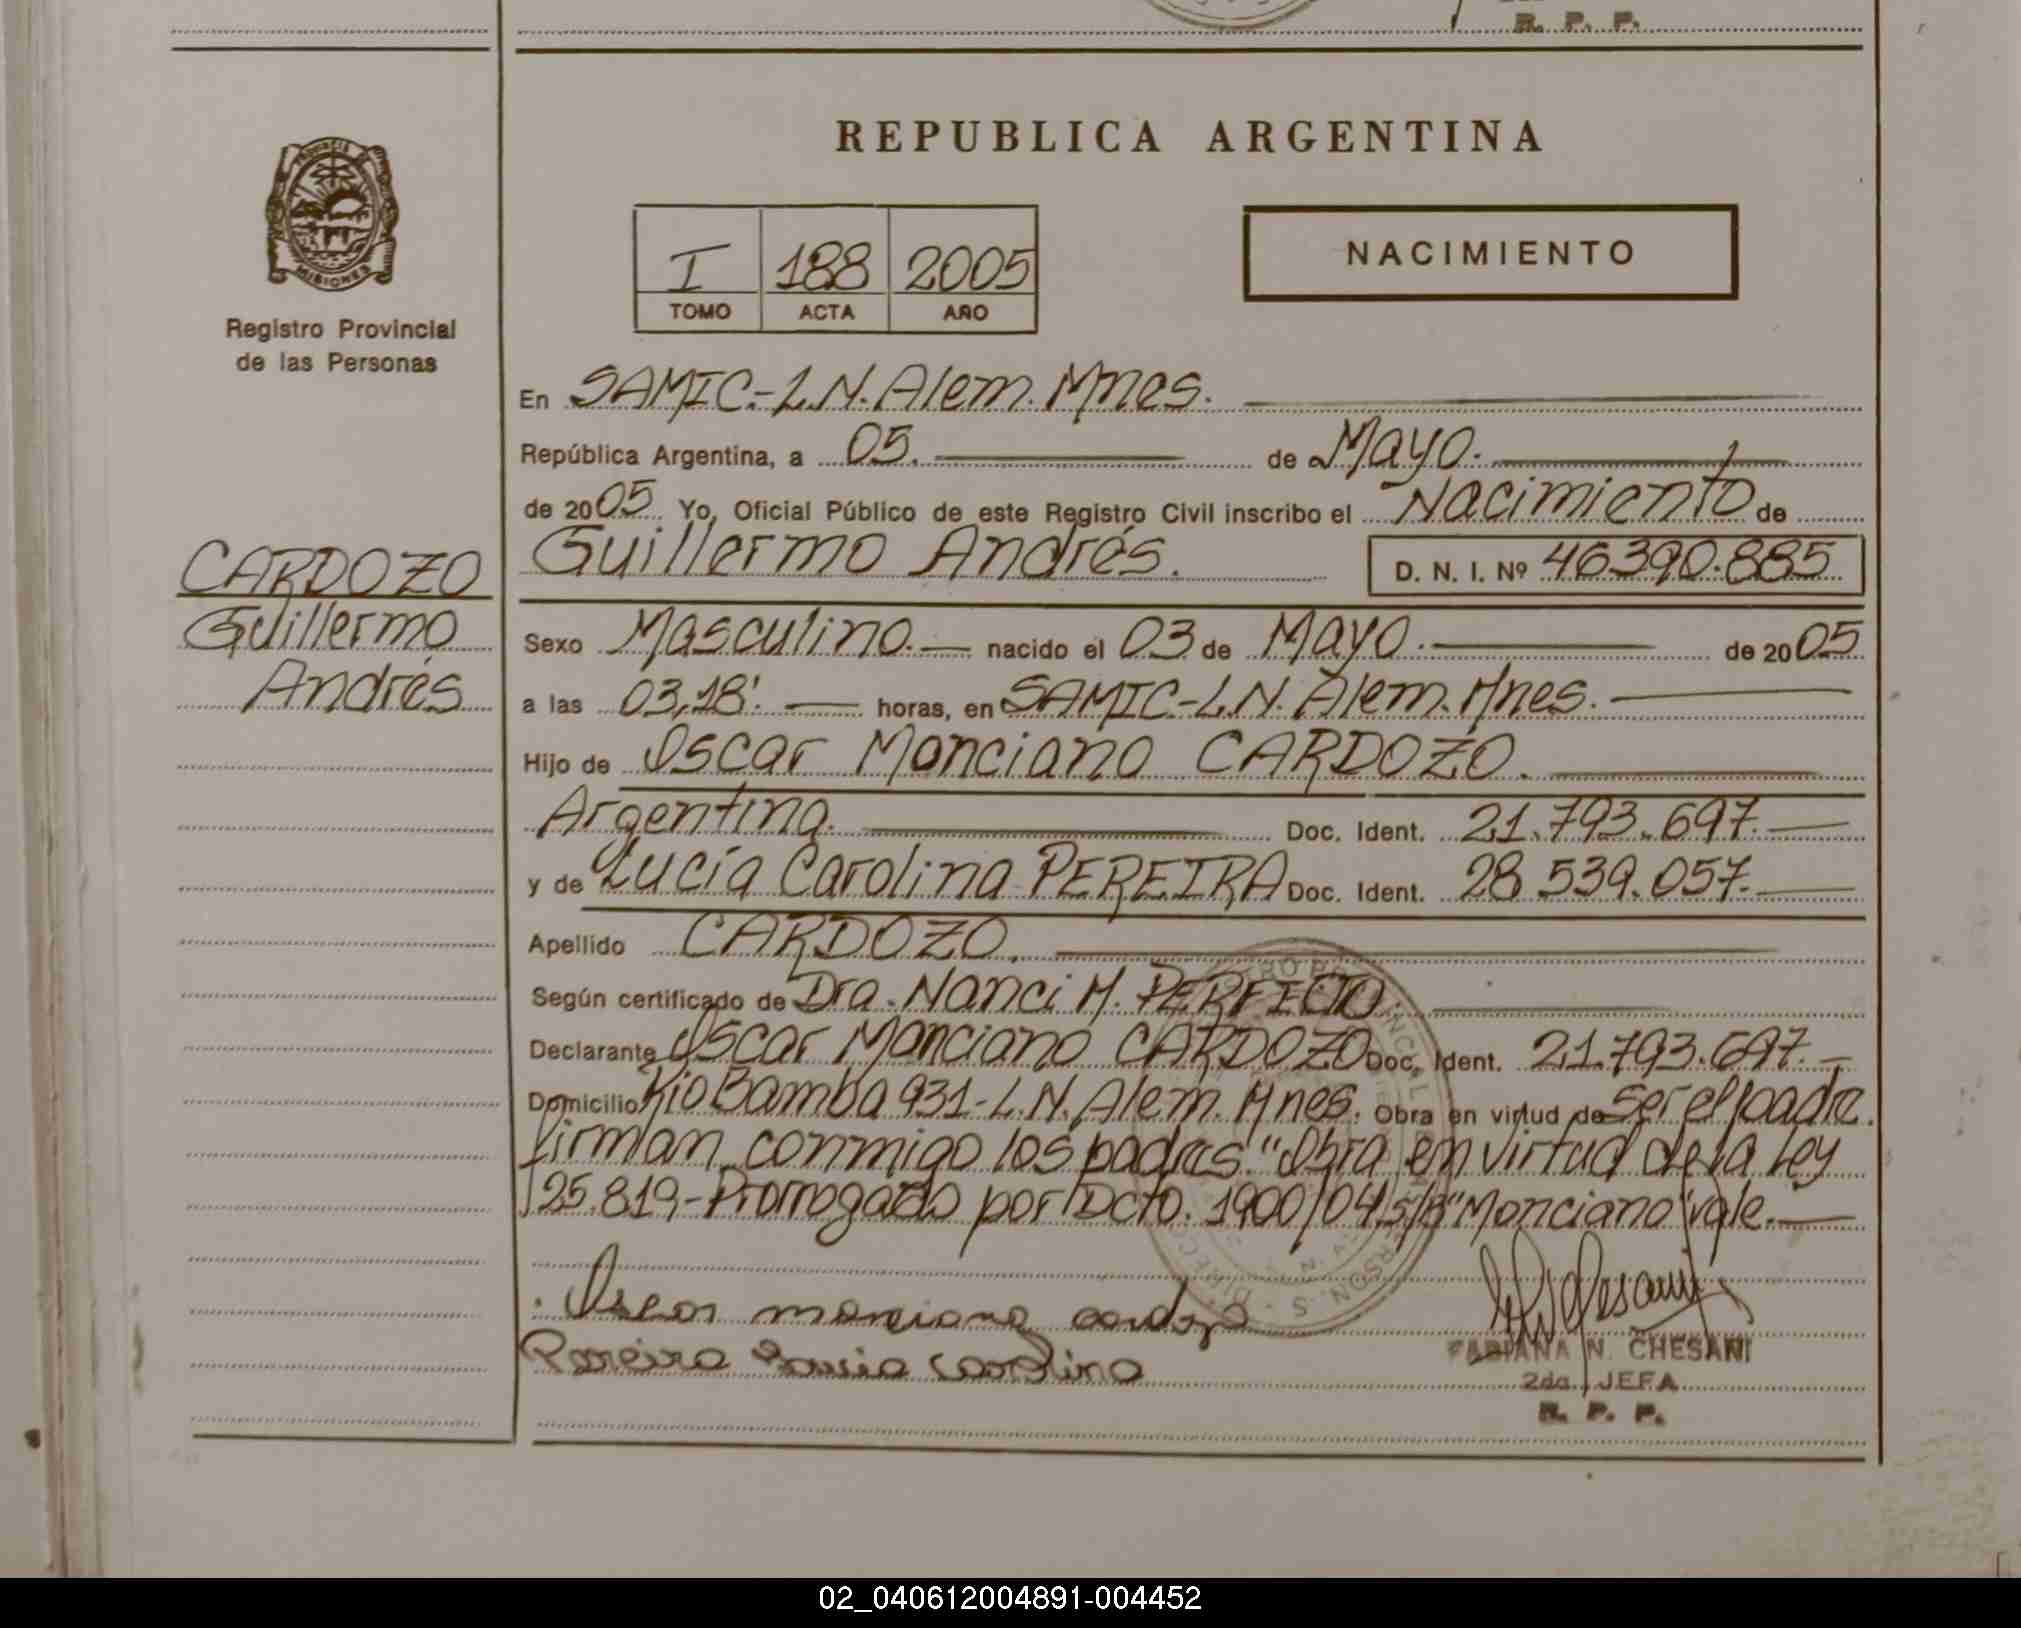 R. P. P.
REPUBLICA ARGENTINA
I 188 2005
TOMO ACTA AÑO
NACIMIENTO
PROVINCIA DE MISIONES
Registro Provincial
de las Personas
CARDOZO
Guillermo
Andrés
En SAMIC.-L.N. Alem. Mnes.
República Argentina, a 05. de Mayo.
de 2005 Yo, Oficial Público de este Registro Civil inscribo el Nacimiento de
Guillermo Andrés. D. N. I. Nº 46390.885
Sexo Masculino. nacido el 03 de Mayo. de 2005
a las 03,18'. horas, en SAMIC-L.N. Alem. Mnes.
Hijo de Oscar Monciano CARDOZO.
Argentina. Doc. Ident. 21.793.697.
y de Lucía Carolina PEREIRA Doc. Ident. 28.539.057.
Apellido CARDOZO.
Según certificado de Dra. Nanci M. PERFECTO.
Declarante Oscar Monciano CARDOZO Doc. Ident. 21.793.697.
Domicilio Rio Bamba 931-L.N. Alem. Mnes. Obra en virtud de ser el padre.
firman conmigo los padres. "Obra en virtud de la Ley
25.819,-Prorrogado por Dcto. 1900/04 s/b "Monciano" vale.
Oscar monciano cardozo
Pereira Lucia Carolina
FABIANA N. CHESANI
2da. JEFA
R. P. P.
02_040612004891-004452